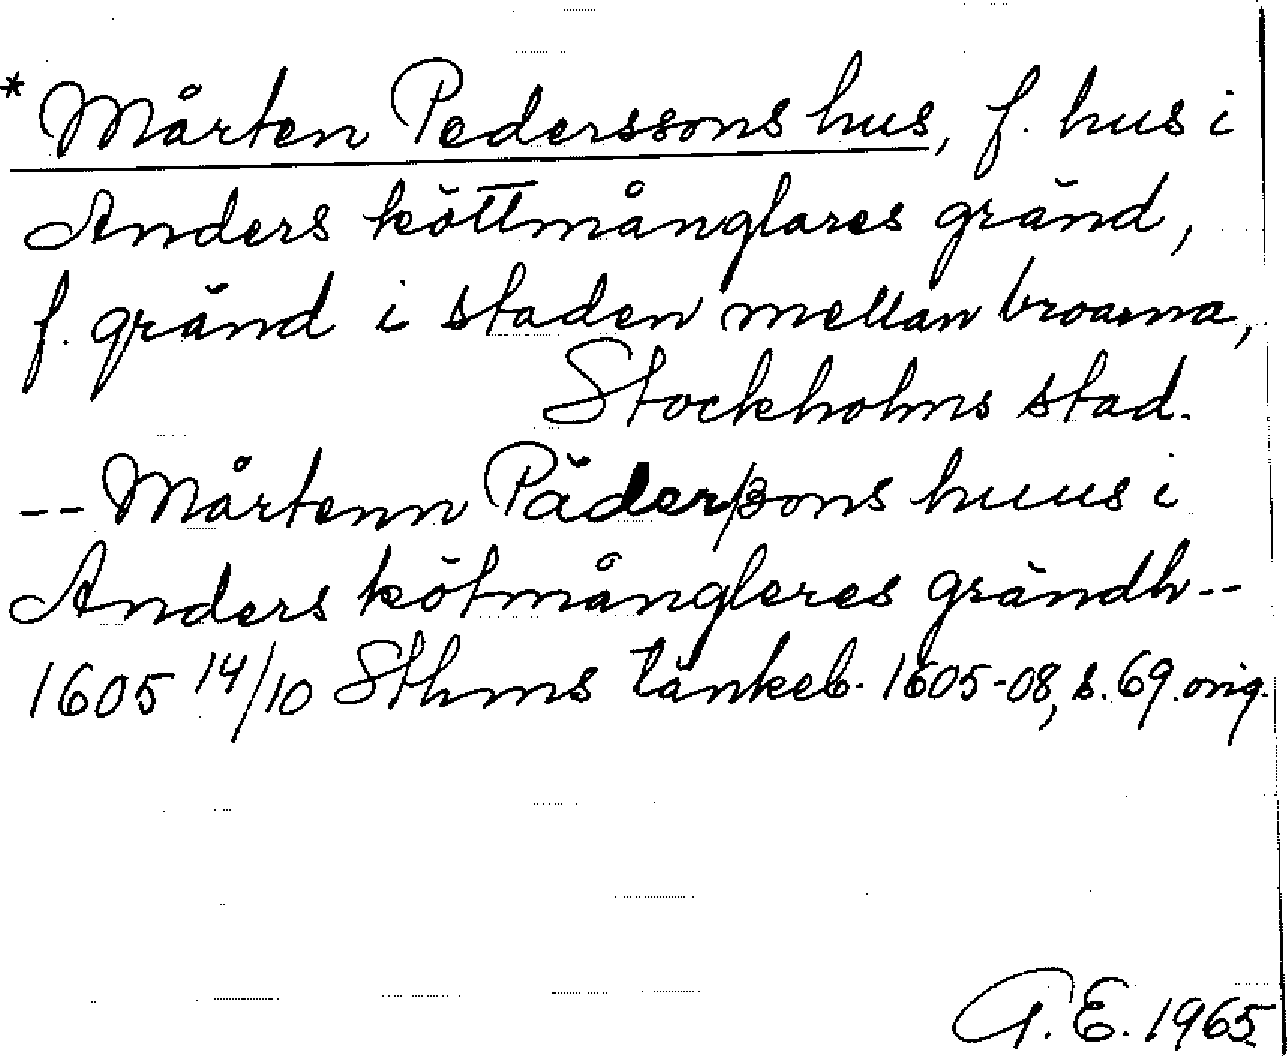 * Mårten Pederssons hus, f. hus i
Anders köttmånglares gränd,
f. gränd i staden mellan broarna,
Stockholms stad.
-- Mårtenn Päder/ßons huus i
Anders kötmångleres grändh --
1605 14/10 Sthms tänkeb. 1605-08, s. 69. orig.
G. E. 1965